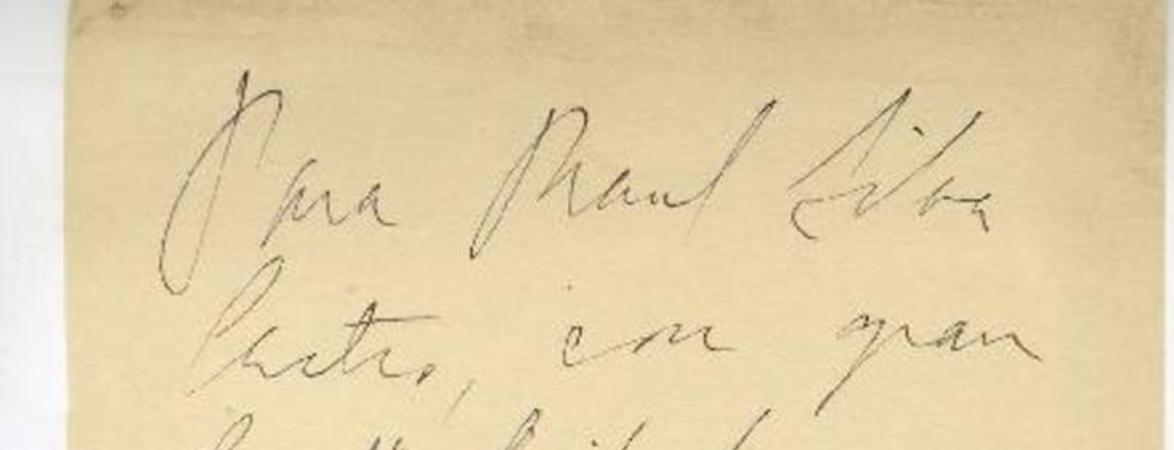 Para Raul Silva
Castro, con gran